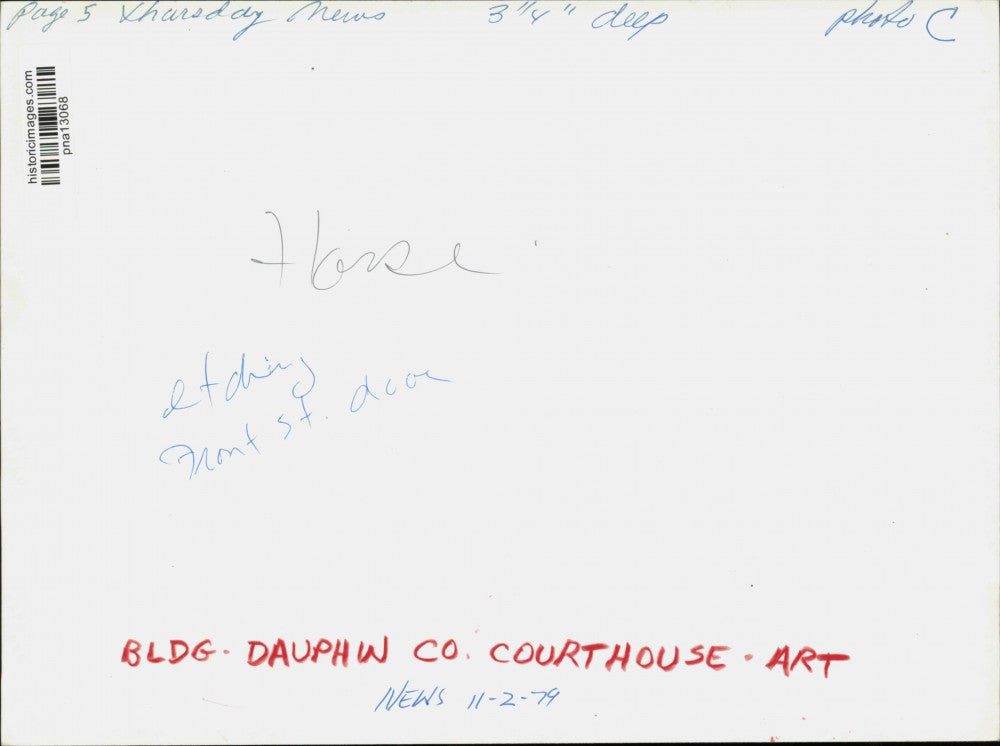 Page 5 Thursday News 3 1/4" deep photo C
historicimages.com
pna13068
Horse
etching
Front St. door
BLDG. DAUPHIN CO. COURTHOUSE - ART
NEWS 11-2-79